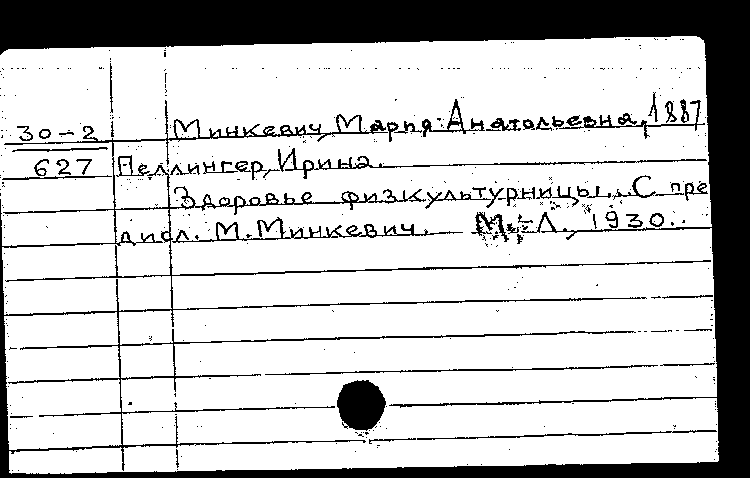 30-2 Минкевич, Мария Анатольевна, 1887
627 Пеллингер, Ирина.
Здоровье физкультурницы.. С пре
дисл. М. Минкевич. М.-Л., 1930..